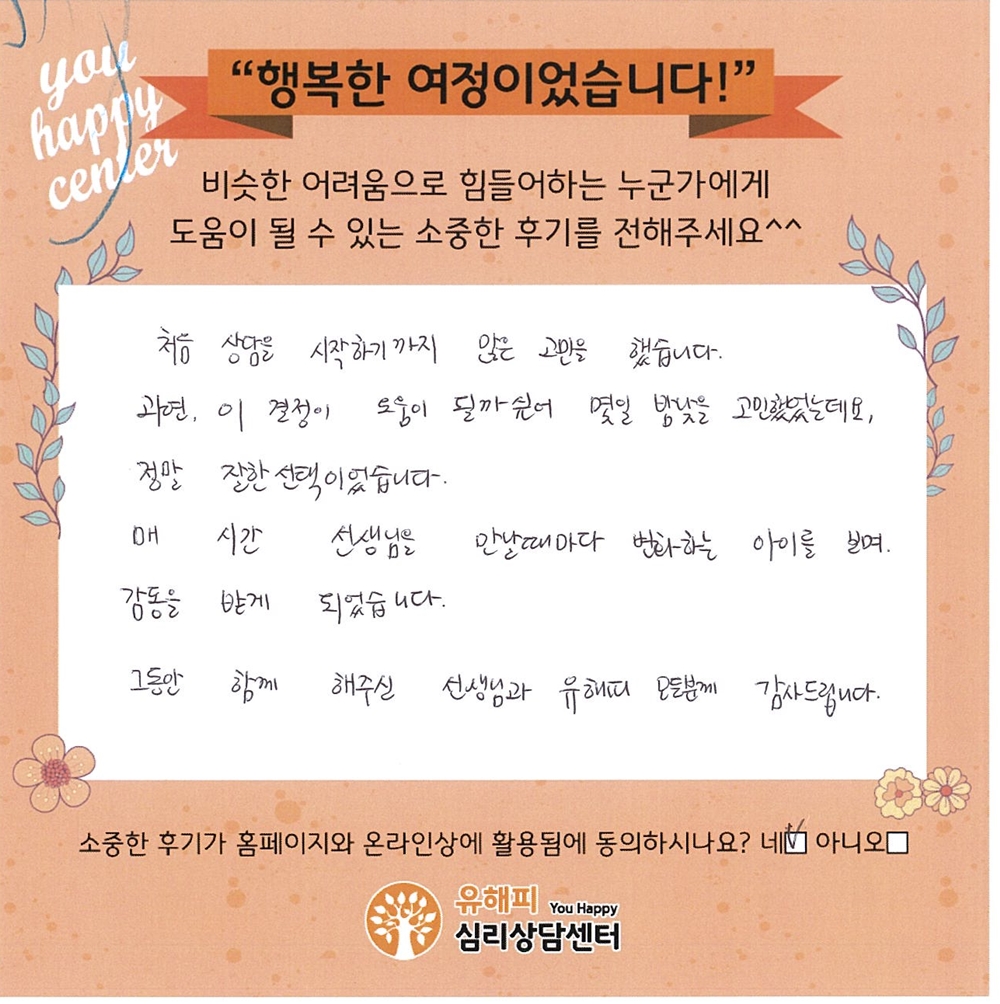 you
happy
center
“행복한 여정이었습니다!”
비슷한 어려움으로 힘들어하는 누군가에게
도움이 될 수 있는 소중한 후기를 전해주세요^^
처음 상담을 시작하기까지 많은 고민을 했습니다.
과연, 이 결정이 도움이 될까 싶어 몇일 밤낮을 고민했었는데요,
정말 잘한 선택이었습니다.
매 시간 선생님을 만날때마다 변화하는 아이를 보며.
감동을 받게 되었습니다.
그동안 함께 해주신 선생님과 유해피 모든분께 감사드립니다.
소중한 후기가 홈페이지와 온라인상에 활용됨에 동의하시나요? 네☑ 아니오☐
유해피 You Happy
심리상담센터